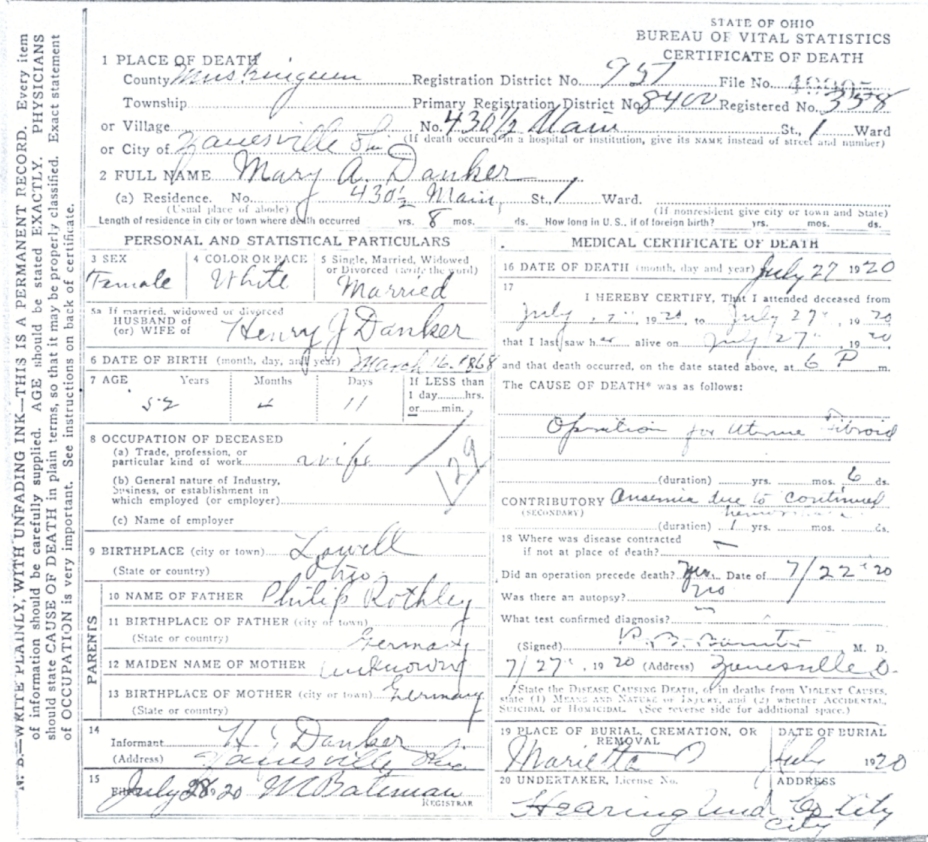 STATE OF OHIO
BUREAU OF VITAL STATISTICS
CERTIFICATE OF DEATH
1 PLACE OF DEATH
County Muskingum Registration District No. 957 File No.
Township Primary Registration District No. 8400 Registered No. 358
or Village No. 430½ Main St., 1 Ward
or City of Zanesville (If death occured in a hospital or institution, give its NAME instead of street and number)
2 FULL NAME Mary A. Danker
(a) Residence. No. 430½ Main, St., 1 Ward.
(Usual place of abode) (If nonresident give city or town and State)
Length of residence in city or town where death occurred yrs. 8 mos. ds. How long in U. S., if of foreign birth? yrs. mos. ds.
PERSONAL AND STATISTICAL PARTICULARS
3 SEX 4 COLOR OR RACE 5 Single, Married, Widowed
or Divorced (write the word)
Female White Married
5a If married, widowed or divorced
HUSBAND of
(or) WIFE of Henry J Danker
6 DATE OF BIRTH (month, day, and year) March 16, 1868
7 AGE Years Months Days If LESS than
1 day......hrs.
or......min.
52 4 11
8 OCCUPATION OF DECEASED
(a) Trade, profession, or
particular kind of work wife
129
(b) General nature of Industry,
Business, or establishment in
which employed (or employer)
(c) Name of employer
9 BIRTHPLACE (city or town) Lowell
(State or country) Ohio
PARENTS
10 NAME OF FATHER Philip Rothley
11 BIRTHPLACE OF FATHER (city or town)
(State or country) Germany
12 MAIDEN NAME OF MOTHER Unknown
13 BIRTHPLACE OF MOTHER (city or town) Germany
(State or country)
14
Informant H. J. Danker
(Address) Zanesville Ohio
15
Filed July 28 1920 M Bateman
REGISTRAR
MEDICAL CERTIFICATE OF DEATH
16 DATE OF DEATH (month, day and year) July 27 1920
17
I HEREBY CERTIFY, That I attended deceased from
July 2", 1920 to July 27", 1920
that I last saw her alive on July 27", 1920
and that death occurred, on the date stated above, at 6 P m.
The CAUSE OF DEATH* was as follows:
Operation for Uterine Fibroid
(duration) yrs. mos. 6 ds.
CONTRIBUTORY Anaemia due to continued
(SECONDARY) hemorrhage
(duration) 1 yrs. mos. ds.
18 Where was disease contracted
if not at place of death?
Did an operation precede death? Yes Date of 7/22 20
Was there an autopsy? No
What test confirmed diagnosis?
(Signed) M. D.
7/27", 1920 (Address) Zanesville O.
*State the DISEASE CAUSING DEATH, or in deaths from VIOLENT CAUSES,
state (1) MEANS AND NATURE OF INJURY, and (2) whether ACCIDENTAL,
SUICIDAL or HOMICIDAL. (See reverse side for additional space.)
19 PLACE OF BURIAL, CREMATION, OR
REMOVAL
DATE OF BURIAL
Marietta O July 1920
20 UNDERTAKER, License No. ADDRESS
Hearing Und Co City
City
N. B.—WRITE PLAINLY, WITH UNFADING INK—THIS IS A PERMANENT RECORD. Every item
of information should be carefully supplied. AGE should be stated EXACTLY. PHYSICIANS
should state CAUSE OF DEATH in plain terms, so that it may be properly classified. Exact statement
of OCCUPATION is very important. See instructions on back of certificate.